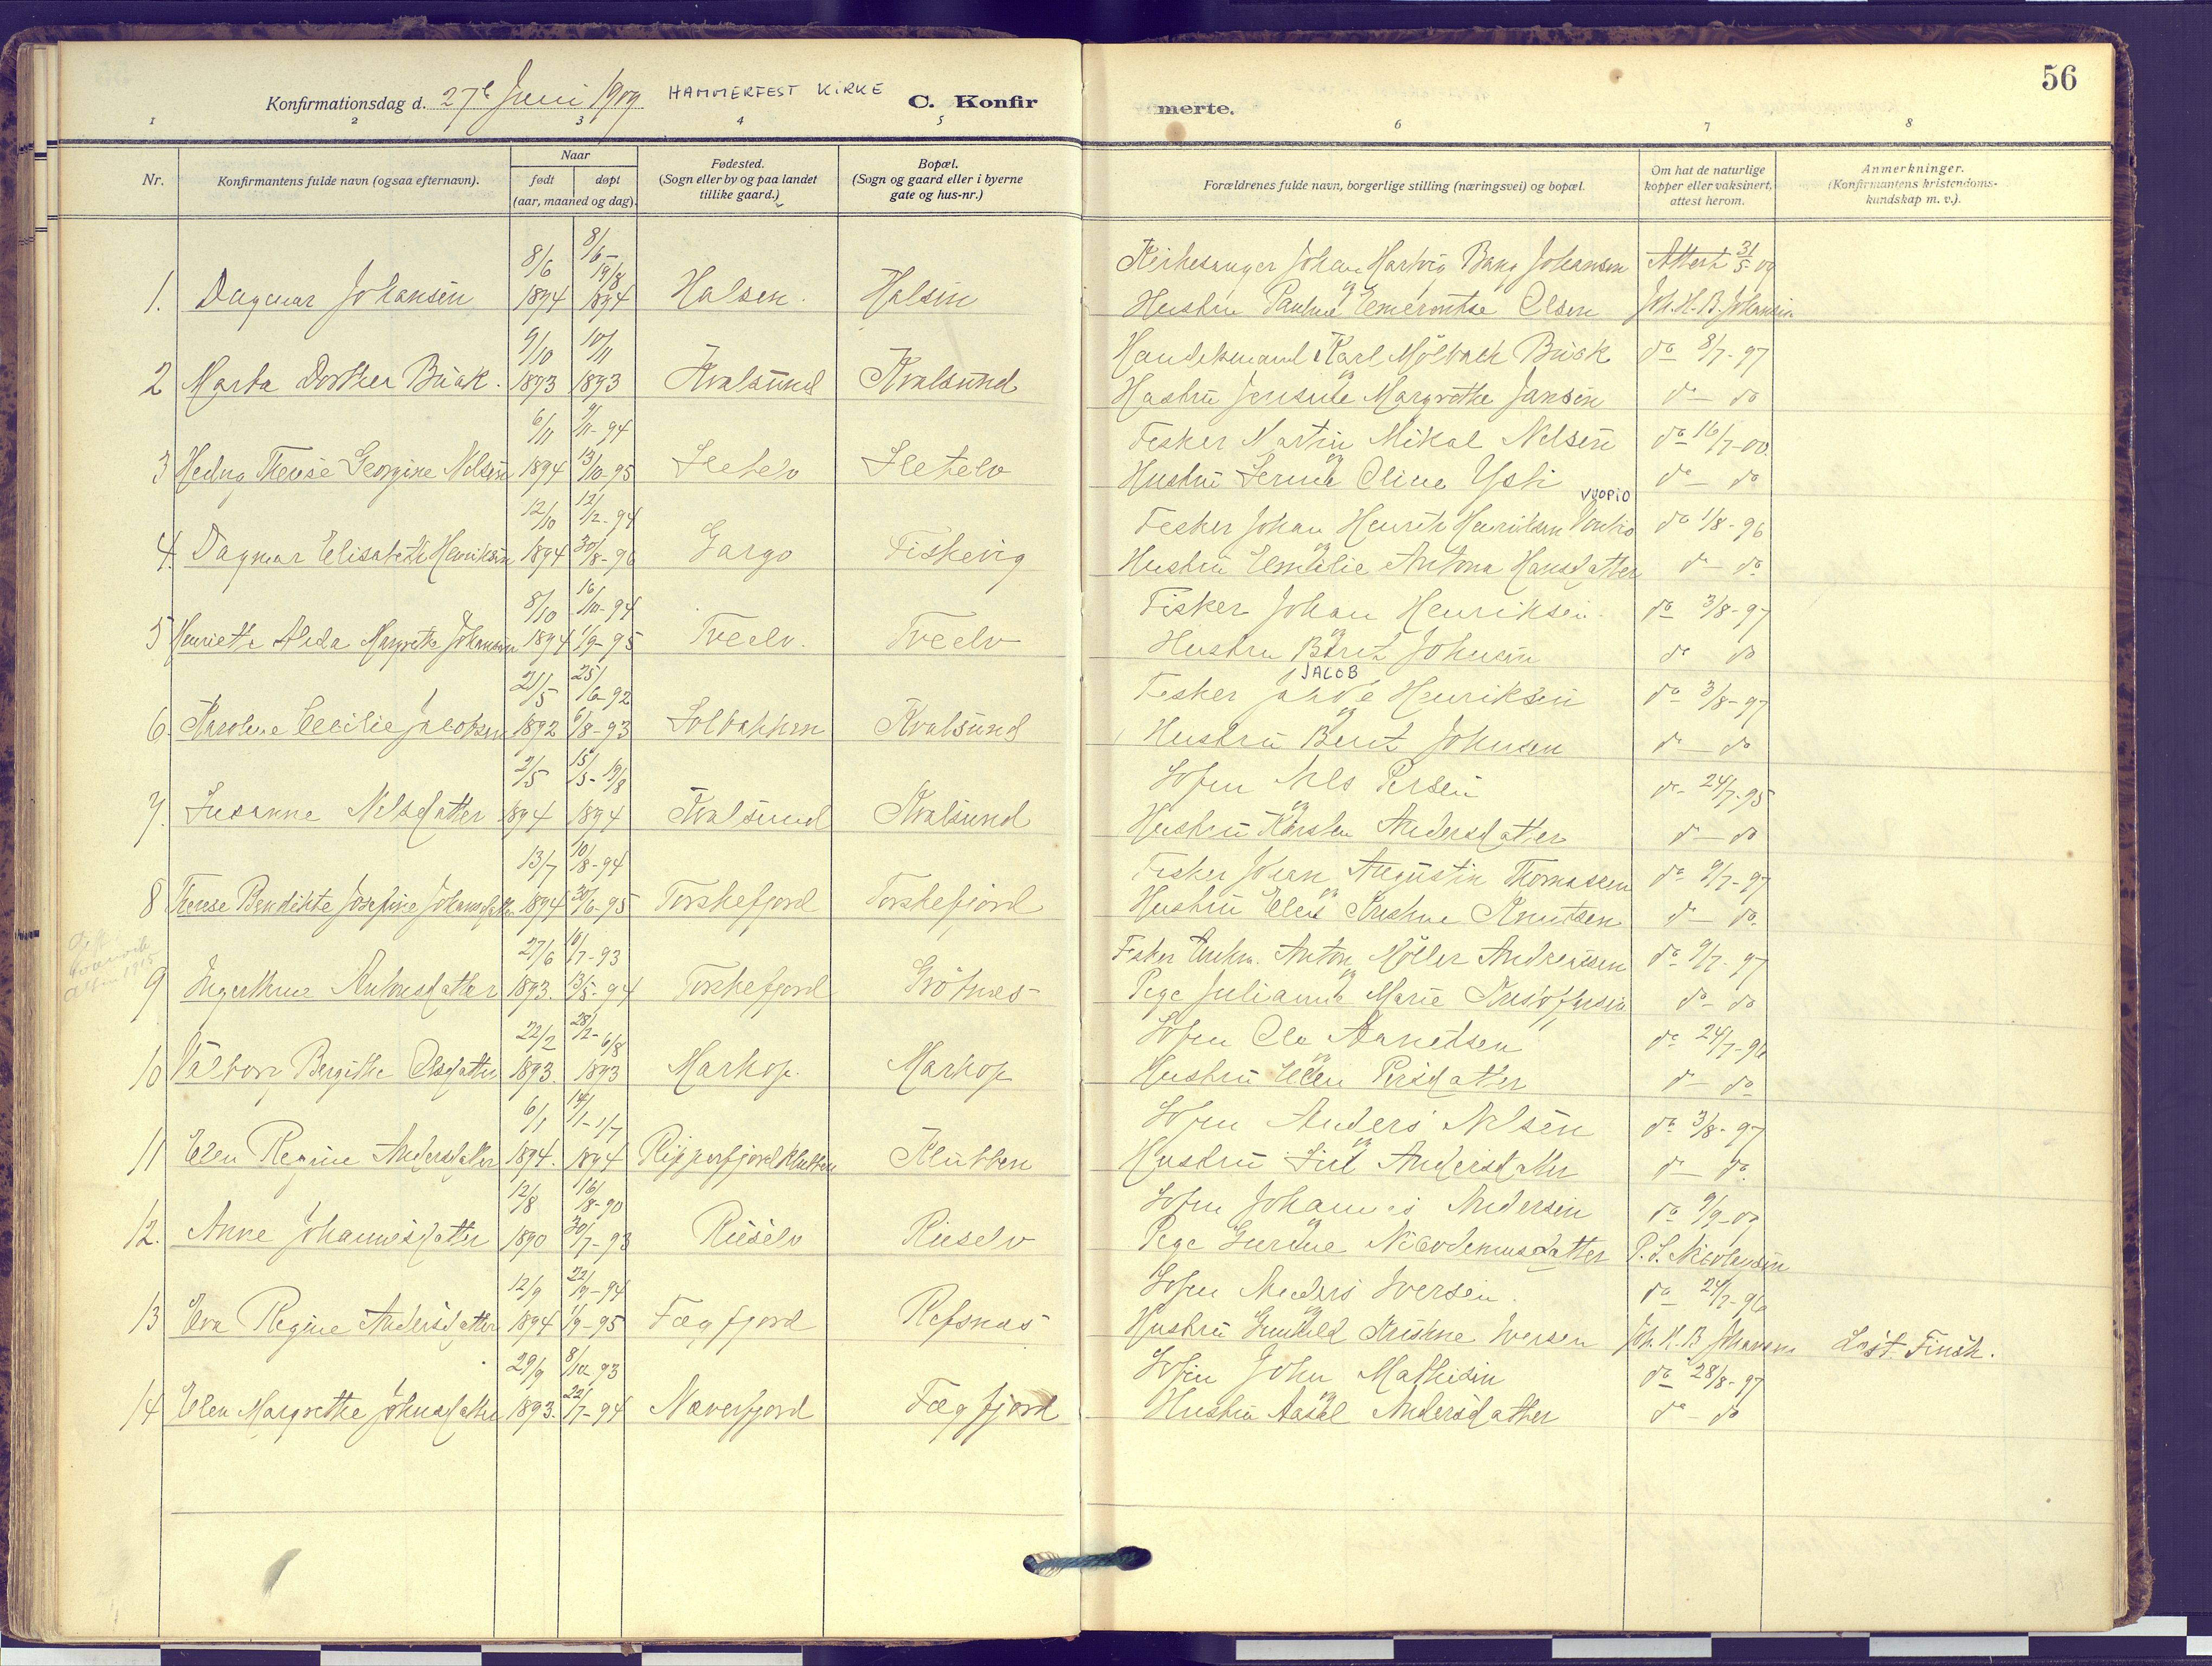 56
Konfirmationsdag d. 27de Juni 1909 HAMMERFEST KIRKE C. Konfirmerte.
1 2 3 4 5 6 7 8
Nr.
Konfirmantens fulde navn (ogsaa efternavn).
Naar
født døpt
(aar, maaned og dag).
Fødested.
(Sogn eller by og paa landet
tillike gaard.)
Bopæl.
(Sogn og gaard eller i byerne
gate og hus-nr.)
Forældrenes fulde navn, borgerlige stilling (næringsvei) og bopæl.
Om hat de naturlige
kopper eller vaksinert,
attest herom.
Anmerkninger.
(Konfirmantens kristendoms-
kundskap m. v.).
8/6 8/6- 19/8 Kirkesanger Johan Hartvig Bang Johansen Attest 31/5 09
1. Dagmar Johansen 1894 1894 Halsen. Halsen og Hustru Pauline Emerentse Olsen Joh. H. B. Johansen
9/10 10/11 Handelsmand Karl Mölbach Buck do 8/7-97
2 Marta Dorthea Buck. 1893 1893 Kvalsund Kvalsund og Hustru Jensine Margrethe Jansen do - do
6/11 9/11-94 Fisker Martin Mikal Nilsen do 16/7-00
3 Hedvig Therese Georgine Nilsen 1894 13/10-95 Sletelv Sletelv og Hustru Serine Oline Ysti do - do
12/10 12/12-94 Fisker Johan Henrik Henriksen VUOPIO do 1/8-96
4. Dagmar Elisabeth Henriksen 1894 30/8-96 Gargo Fiskevig og Hustru Emilie Antona Hansdatter do - do
8/10 16/10-94 Fisker Johan Henriksen. do 3/8-97
5 Henriette Alida Margrethe Johansen 1894 1/9-95 Tveelv. Tveelv og Hustru Berit Johnsen do do
21/5 25/6-92 Fisker JACOB Henriksen do 3/8-97
6. Karoline Cecilie Jacobsen 1892 6/8-93 Solbakken Kvalsund og Hustru Berit Johnsen do - do
2/5 15/5-19/8 Sofin Nils Persen do 24/7-95
7. Susanne Nilsdatter 1894 1894 Kvalsund Kvalsund og Hustru Kirsten Andersdatter do - do
13/7 10/8-94 Fisker Johan Augustin Thomassen do 9/7-97
8 Therese Bendikte Josefine Johansdatter 1894 30/6-95 Torskefjord Torskefjord og Hustru Elen Kristine Knutsen do - do
27/6 16/7-93 Fisker Enkm. Anton Möller Andreassen do 9/7-97
9 Ingertrine Antonsdatter 1893. 13/5-94 Torskefjord Grötnes og Pige Julianna Marie Kristoffersen do - do
22/2 28/2-6/8 Sofin Ole Aanetsen do 24/7-96
10 Valborg Bergitte Olsdatter 1893. 1893 Markop. Markop og Hustru Elen Persdatter do - do
6/1 14/1-1/7 Sofin Anders Nilsen do 3/8-97
11 Elen Regine Andersdatter 1894. 1894 Ripperfjord Klubben Klubben og Hustru Siri Andersdatter do - do
12/8 16/8-90 Sofin Johannes Andersen do 9/9-09
12. Anne Johannesdatter 1890 30/7-93 Rüselv Rüselv og Pige Gurine Nicodemusdatter P. L. Nicolaysen
12/9 22/9-94 Sofin Anders Iversen. do 24/7-96
13 Eva Regine Andersdatter 1894 1/9-95 Fægfjord Refsnæs og Hustru Gunhild Kristine Iversen Joh. H. B. Johansen Læst Finsk.
29/9 8/10-93 Sofin John Mathisen do 28/8-97
14 Elen Margrethe Johnsdatter 1893. 22/7-94 Næverfjord Fægfjord og Hustru Aasel Andersdatter do - do